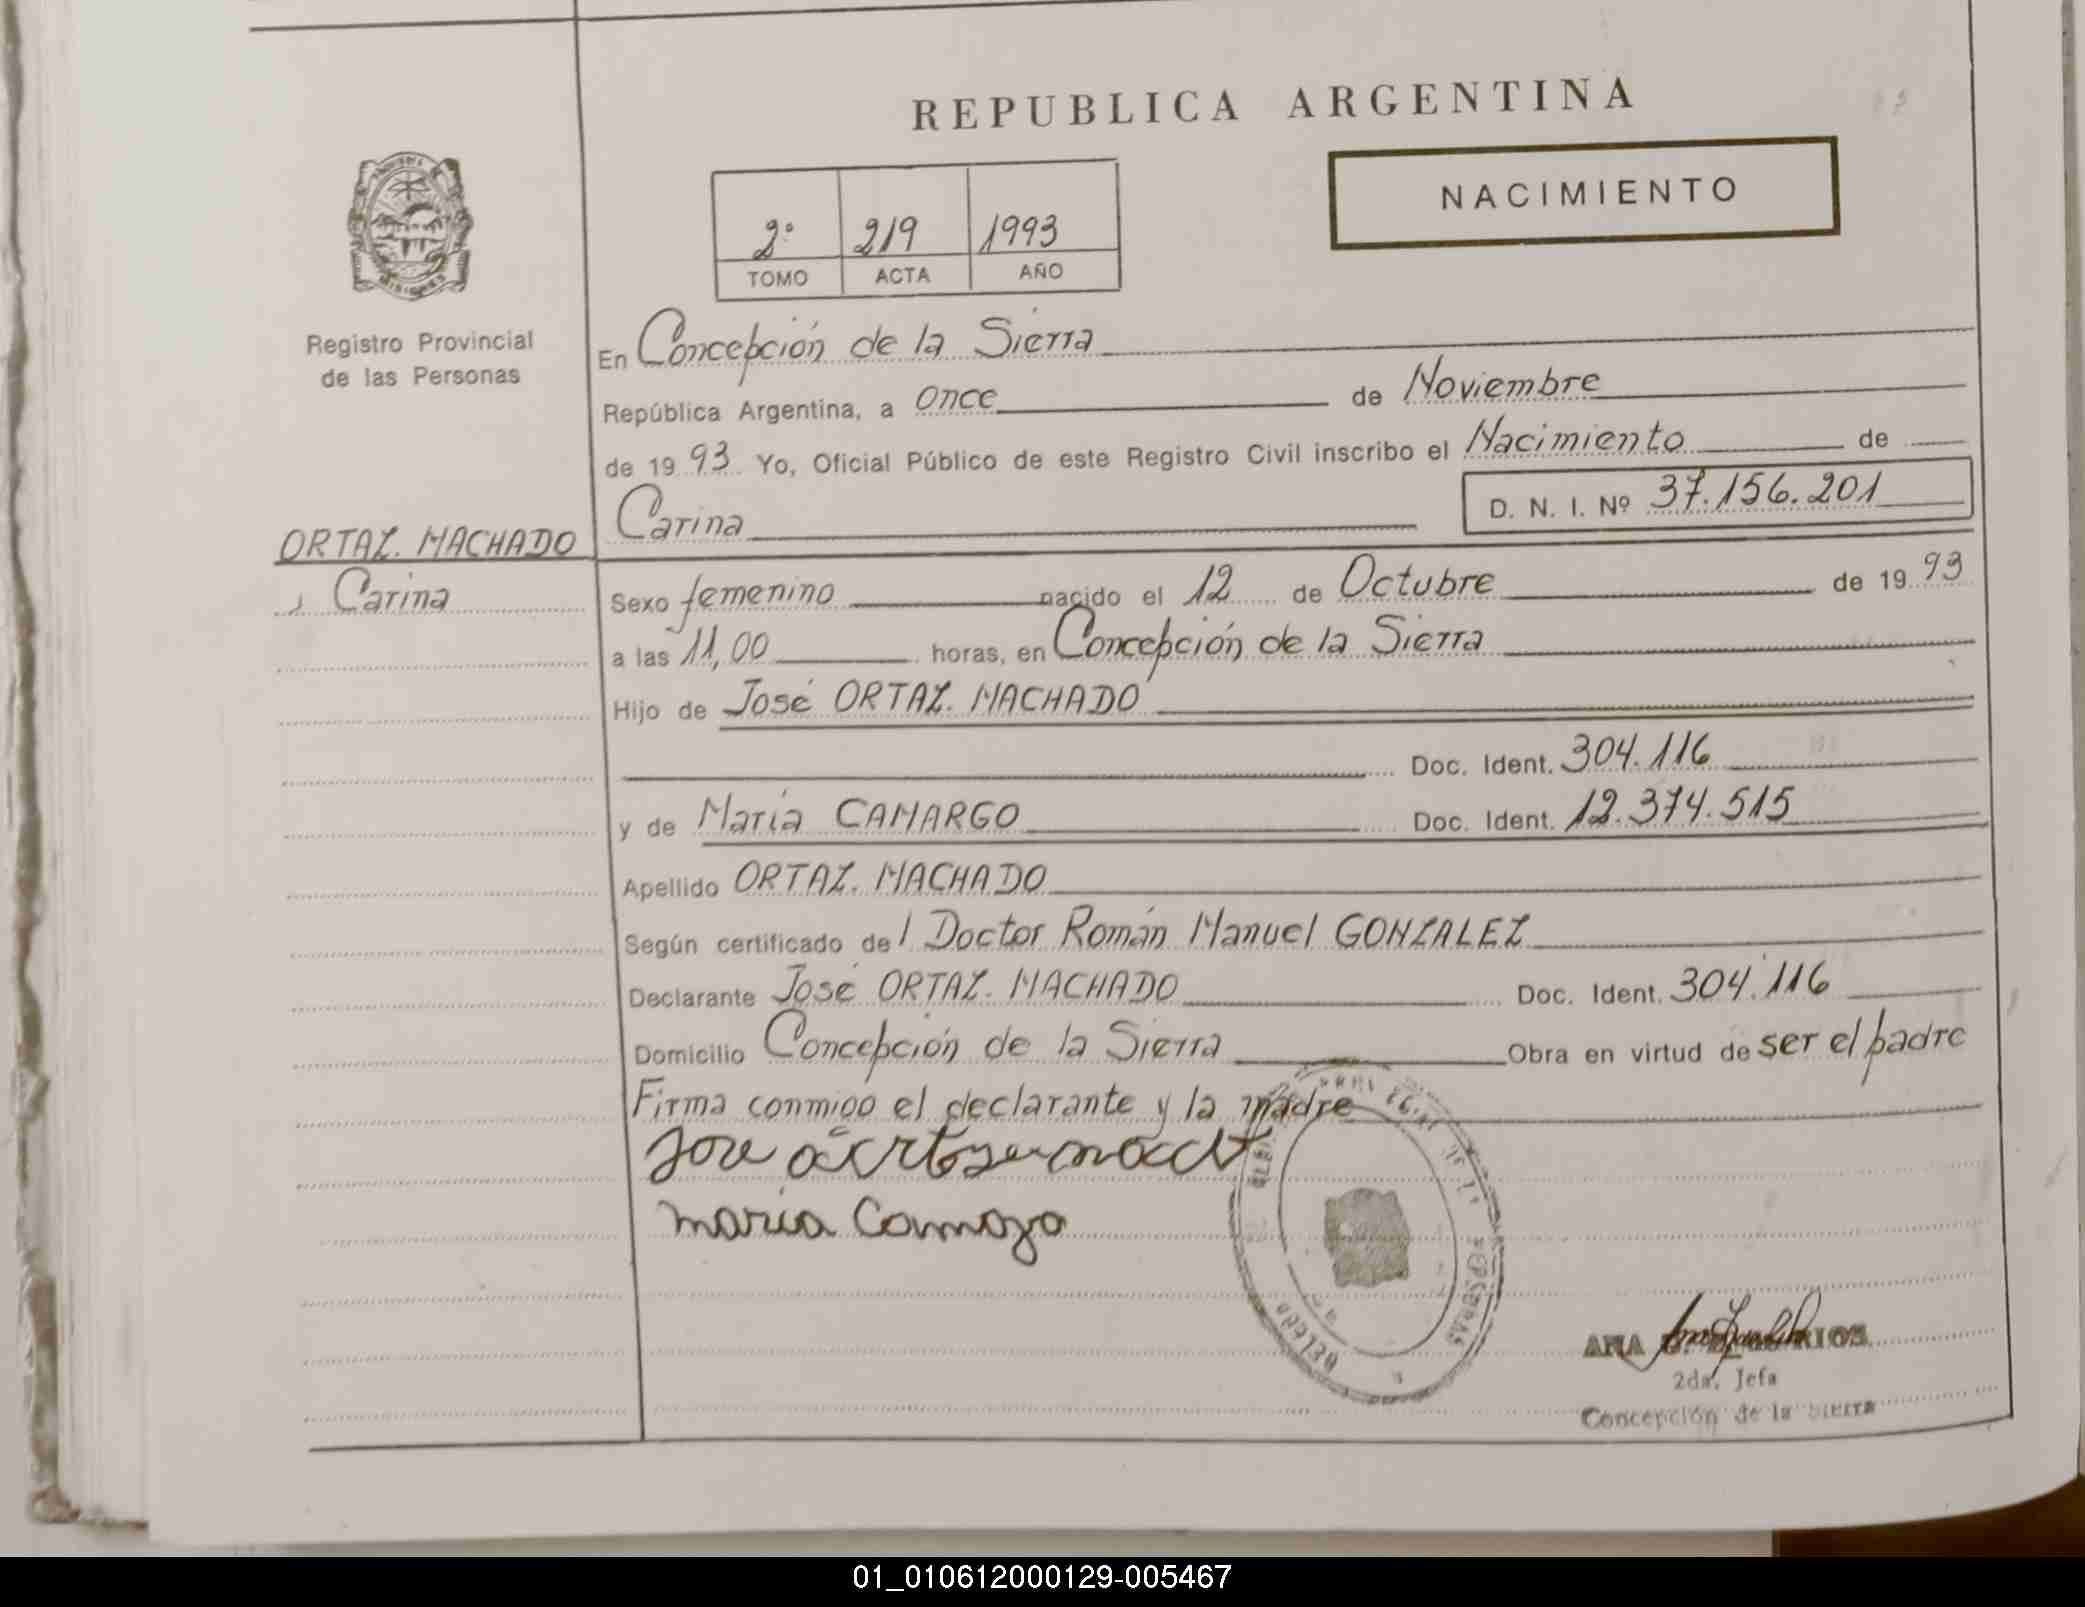 REPUBLICA ARGENTINA
NACIMIENTO
2º 219 1993
TOMO ACTA AÑO
MISIONES
Registro Provincial
de las Personas
En Concepción de la Sierra
República Argentina, a once de Noviembre
de 1993 Yo, Oficial Público de este Registro Civil inscribo el Nacimiento de
Carina D. N. I. Nº 37.156.201
ORTAZ. MACHADO
Carina
Sexo femenino nacido el 12 de Octubre de 1993
a las 11,00 horas, en Concepción de la Sierra
Hijo de José ORTAZ. MACHADO
Doc. Ident. 304.116
y de María CAMARGO Doc. Ident. 12.374.515
Apellido ORTAZ. MACHADO
Según certificado del Doctor Román Manuel GONZALEZ
Declarante José ORTAZ. MACHADO Doc. Ident. 304.116
Domicilio Concepción de la Sierra Obra en virtud de ser el padre
Firma conmigo el declarante y la madre
maria Camargo
PERSONAS
ANA
2da. Jefa
Concepción de la Sierra
01_010612000129-005467